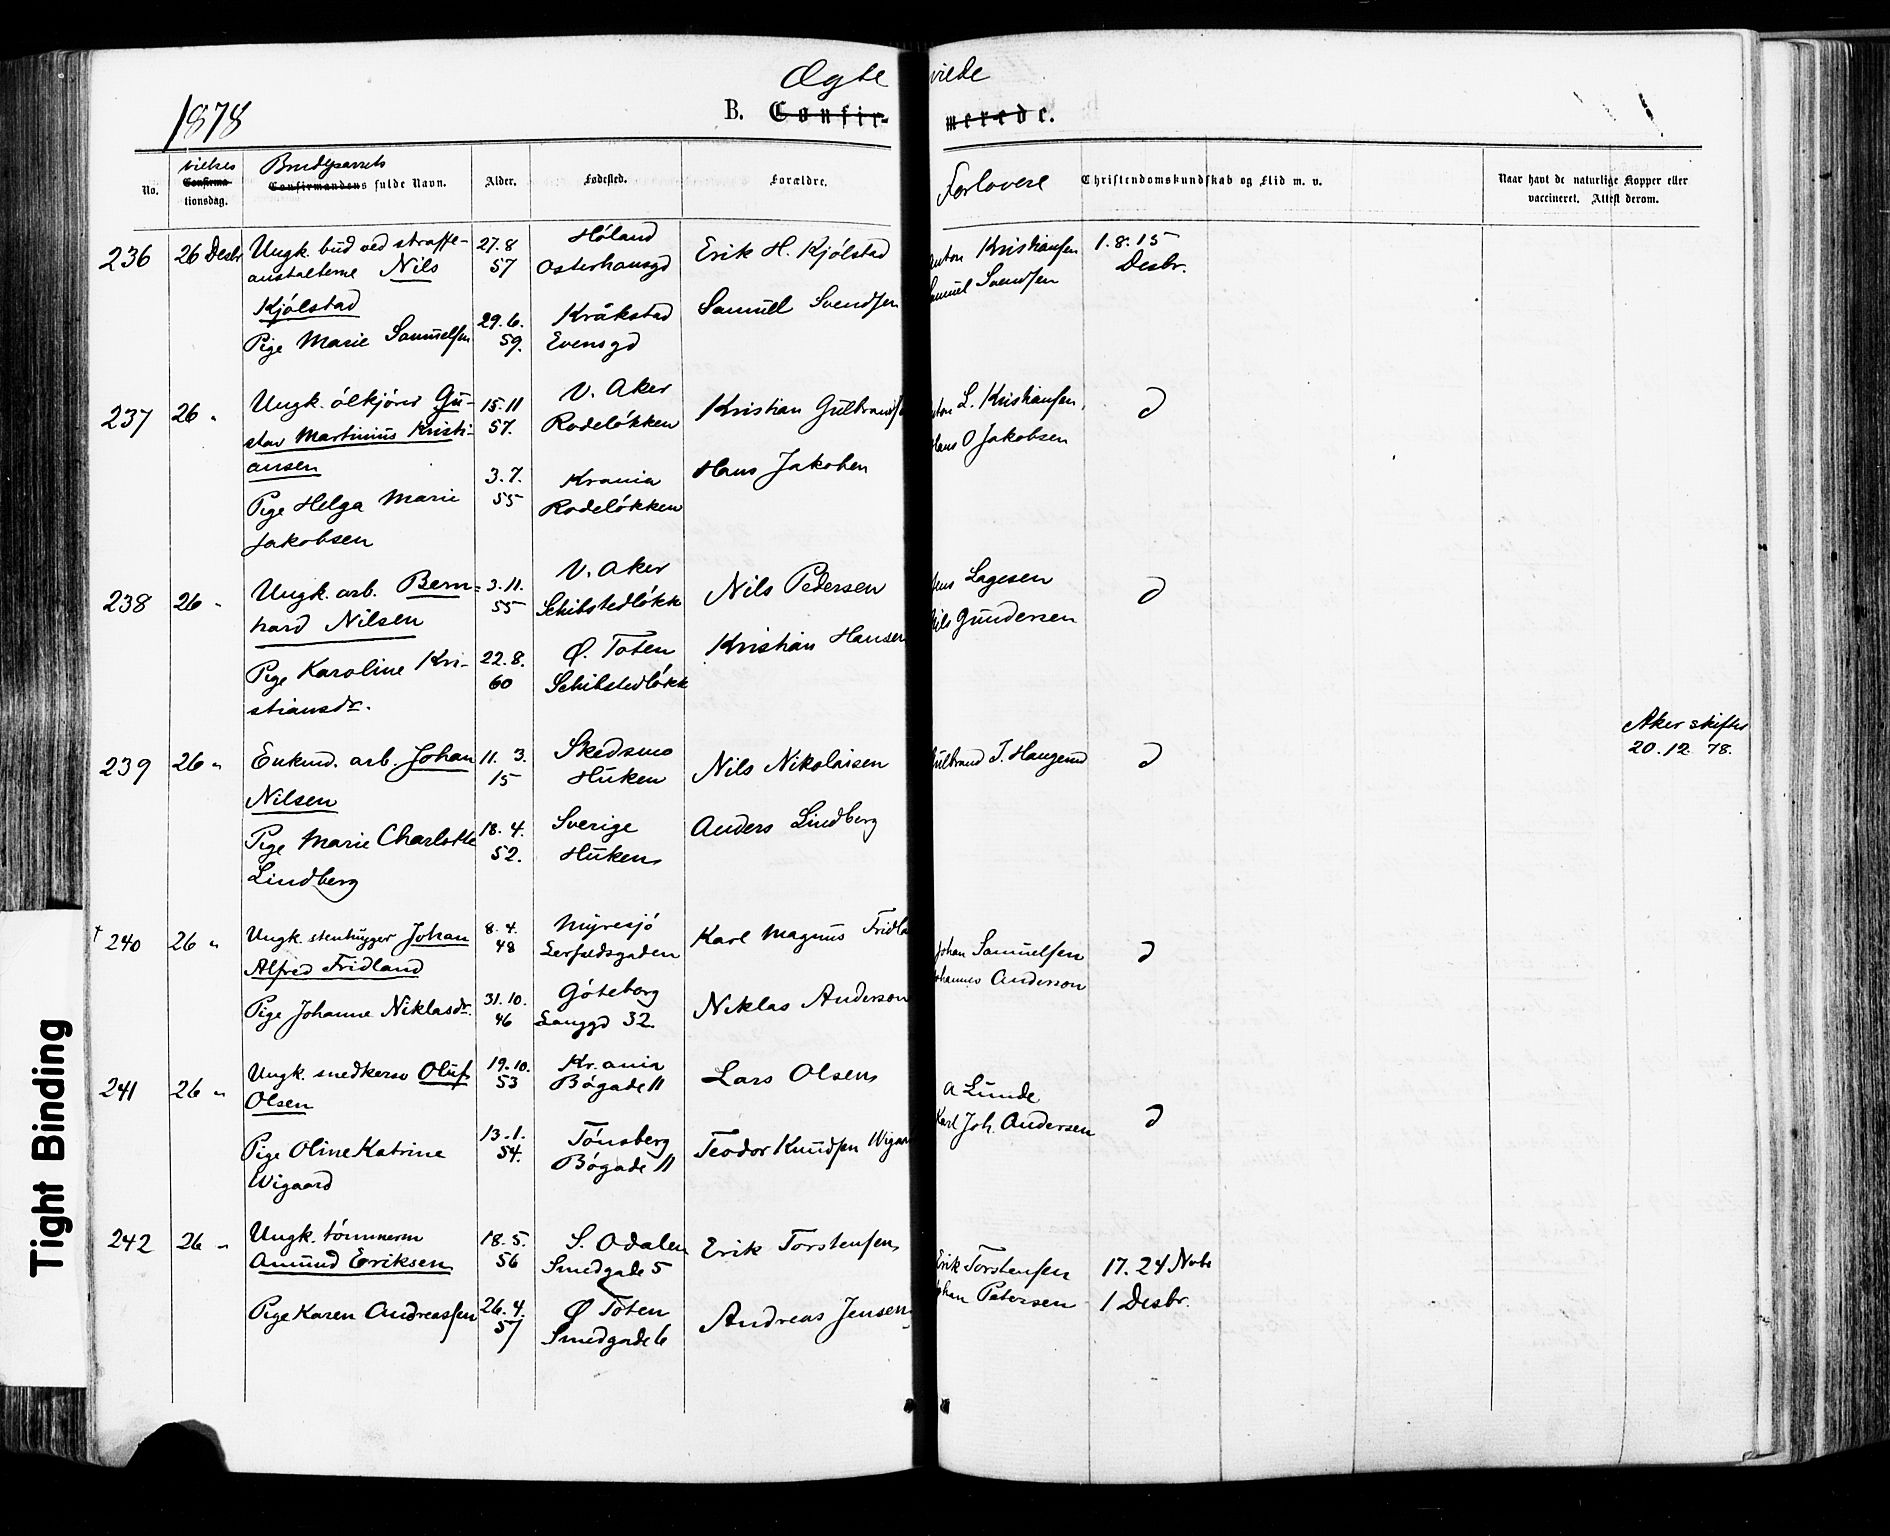 Ægte vielde
1878
B. Confirmerede.
No.
vielses
Confirmationsdag.
Brudeparrets
Confirmandens fulde Navn.
Alder.
Fødested.
Forældre.
Forlovere
Christendomskundskab og Flid m. v.
Naar havt de naturlige Kopper eller
vaccineret. Attest derom.
236 26 Desbr Ungk. bud ved straffe- 27.8 Höland Erik H. Kjölstad Anton Kristiansen 1.8.15
anstalterne Nils 57 Osterhausgd Samuel Svendsen Desbr.
Kjölstad
29.6. Kråkstad Samuel Svendsen
Pige Marie Samuelsen 59. Evensgd
237 26 " Ungk. ölkjörer Gu- 15.11 V. Aker Kristian Gulbrands Anton L. Kristiansen, D
stav Martinius Kristi- 57. Rodelökken Hans O Jakobsen
ansen
3.7. Krania Hans Jakobsen
Pige Helga Marie 55 Rodelökken
Jakobsen
238 26 " Ungk. arb. Bern- 3.11. V. Aker Nils Pedersen Jens Lagesen D
hard Nilsen 55 Schibstedlökk Nils Gundersen
Pige Karoline Kri- 22.8. Ø. Toten Kristian Hansen
stiansdr. 60 Schibstedlökk
Aker skifter
20.12.78.
239 26 " Enkmd. arb. Johan 11.3. Skedsmo Nils Nikolaisen Gulbrand J. Haugerud D
Nilsen 15 Huken
Pige Marie Charlotte 18.4. Sverige Anders Lindberg
Lindberg 52. Huken
† 240 26 " Ungk. stenhugger Johan 8.4. Myresjö Karl Magnus Fridla Johan Samuelsen D
Alfred Fridland 48 Lerfaldsgaden Johannes Anderson
Pige Johanne Niklasdr. 31.10. Göteborg Niklas Anderson
46 Langgd 32.
241 26 " Ungk. snedkersv Oluf 19.10. Kr.ania Lars Olsen A Lunde
Olsen 53 Bögade 11 Karl Joh. Andersen D
Pige Oline Katrine 13.1. Tönsberg Teodor Knudsen Wigaa
Wigaard 54. Bögade 11
242 26 " Ungk. tömmerm 18.5. S. Odalen Erik Torstensen Erik Torstensen 17. 24 Novbr
Amund Eriksen 56 Smedgade 5 Johan Petersen 1 Desbr.
Pige Karen Andreassen 26.4. Ø Toten Andreas Jensen
57 Smedgade 6
Tight Binding